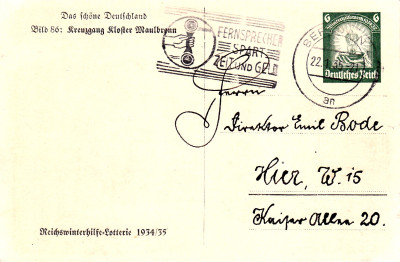 Das schöne Deutschland
Bild 86: Kreuzgang Kloster Maulbronn
FERNSPRECHEN
SPART
ZEIT UND GELD
6 6
Deutsches Reich
an
Herrn
Direktor Emil Bode
Hier, W. 15
Kaiser Allee 20.
Reichswinterhilfe-Lotterie 1934/35